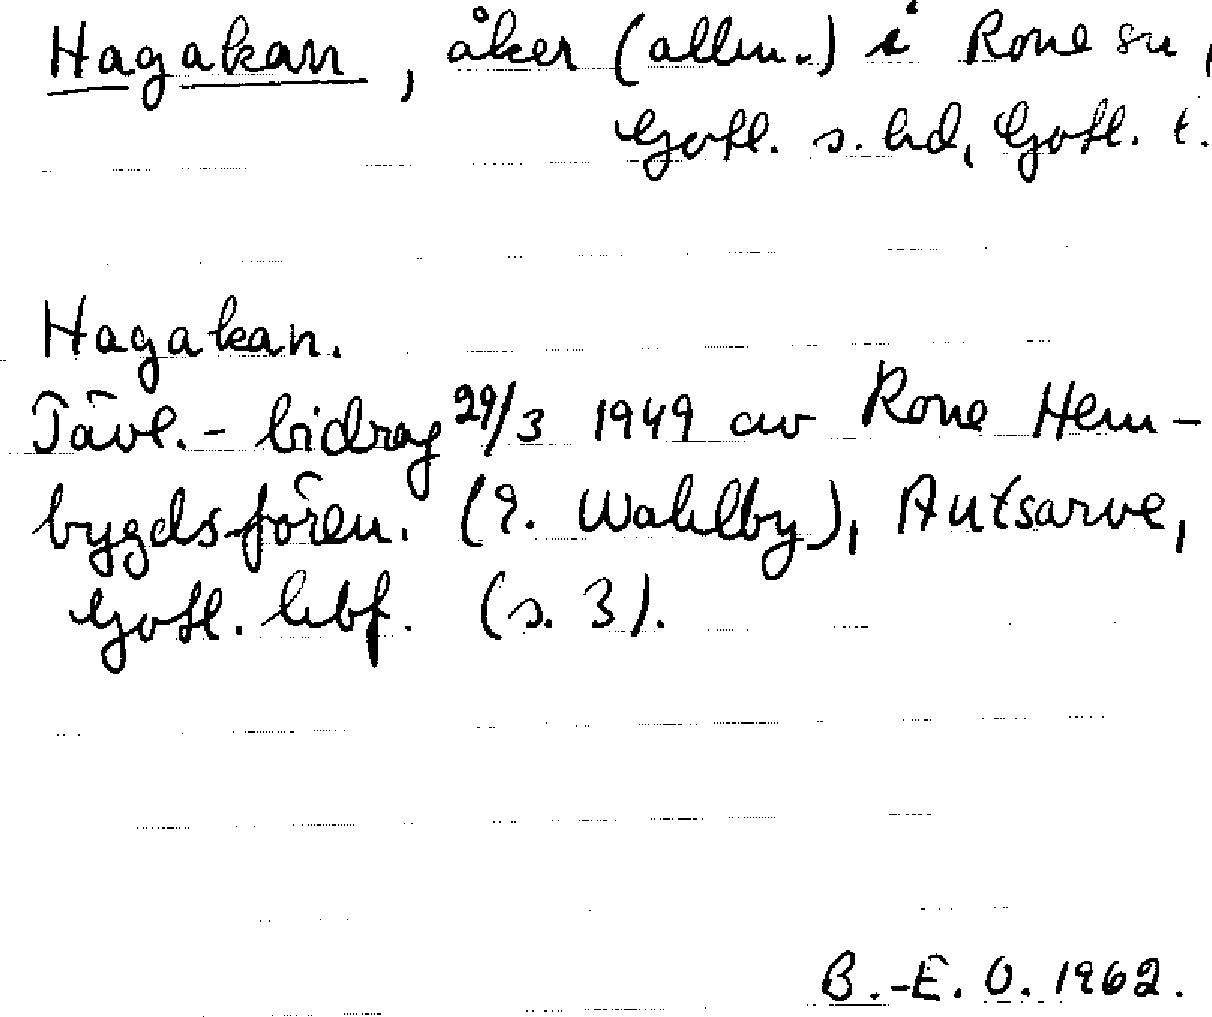 Hagakan, åker (allm.) i Rone sn,
Gotl. s. hd, Gotl. l.
Hagakan.
Tävl.-bidrag 29/3 1949 av Rone Hem-
bygdsfören. (E. Wahlby), Autsarve,
Gotl. hbf. (s. 3).
B.-E. O. 1962.